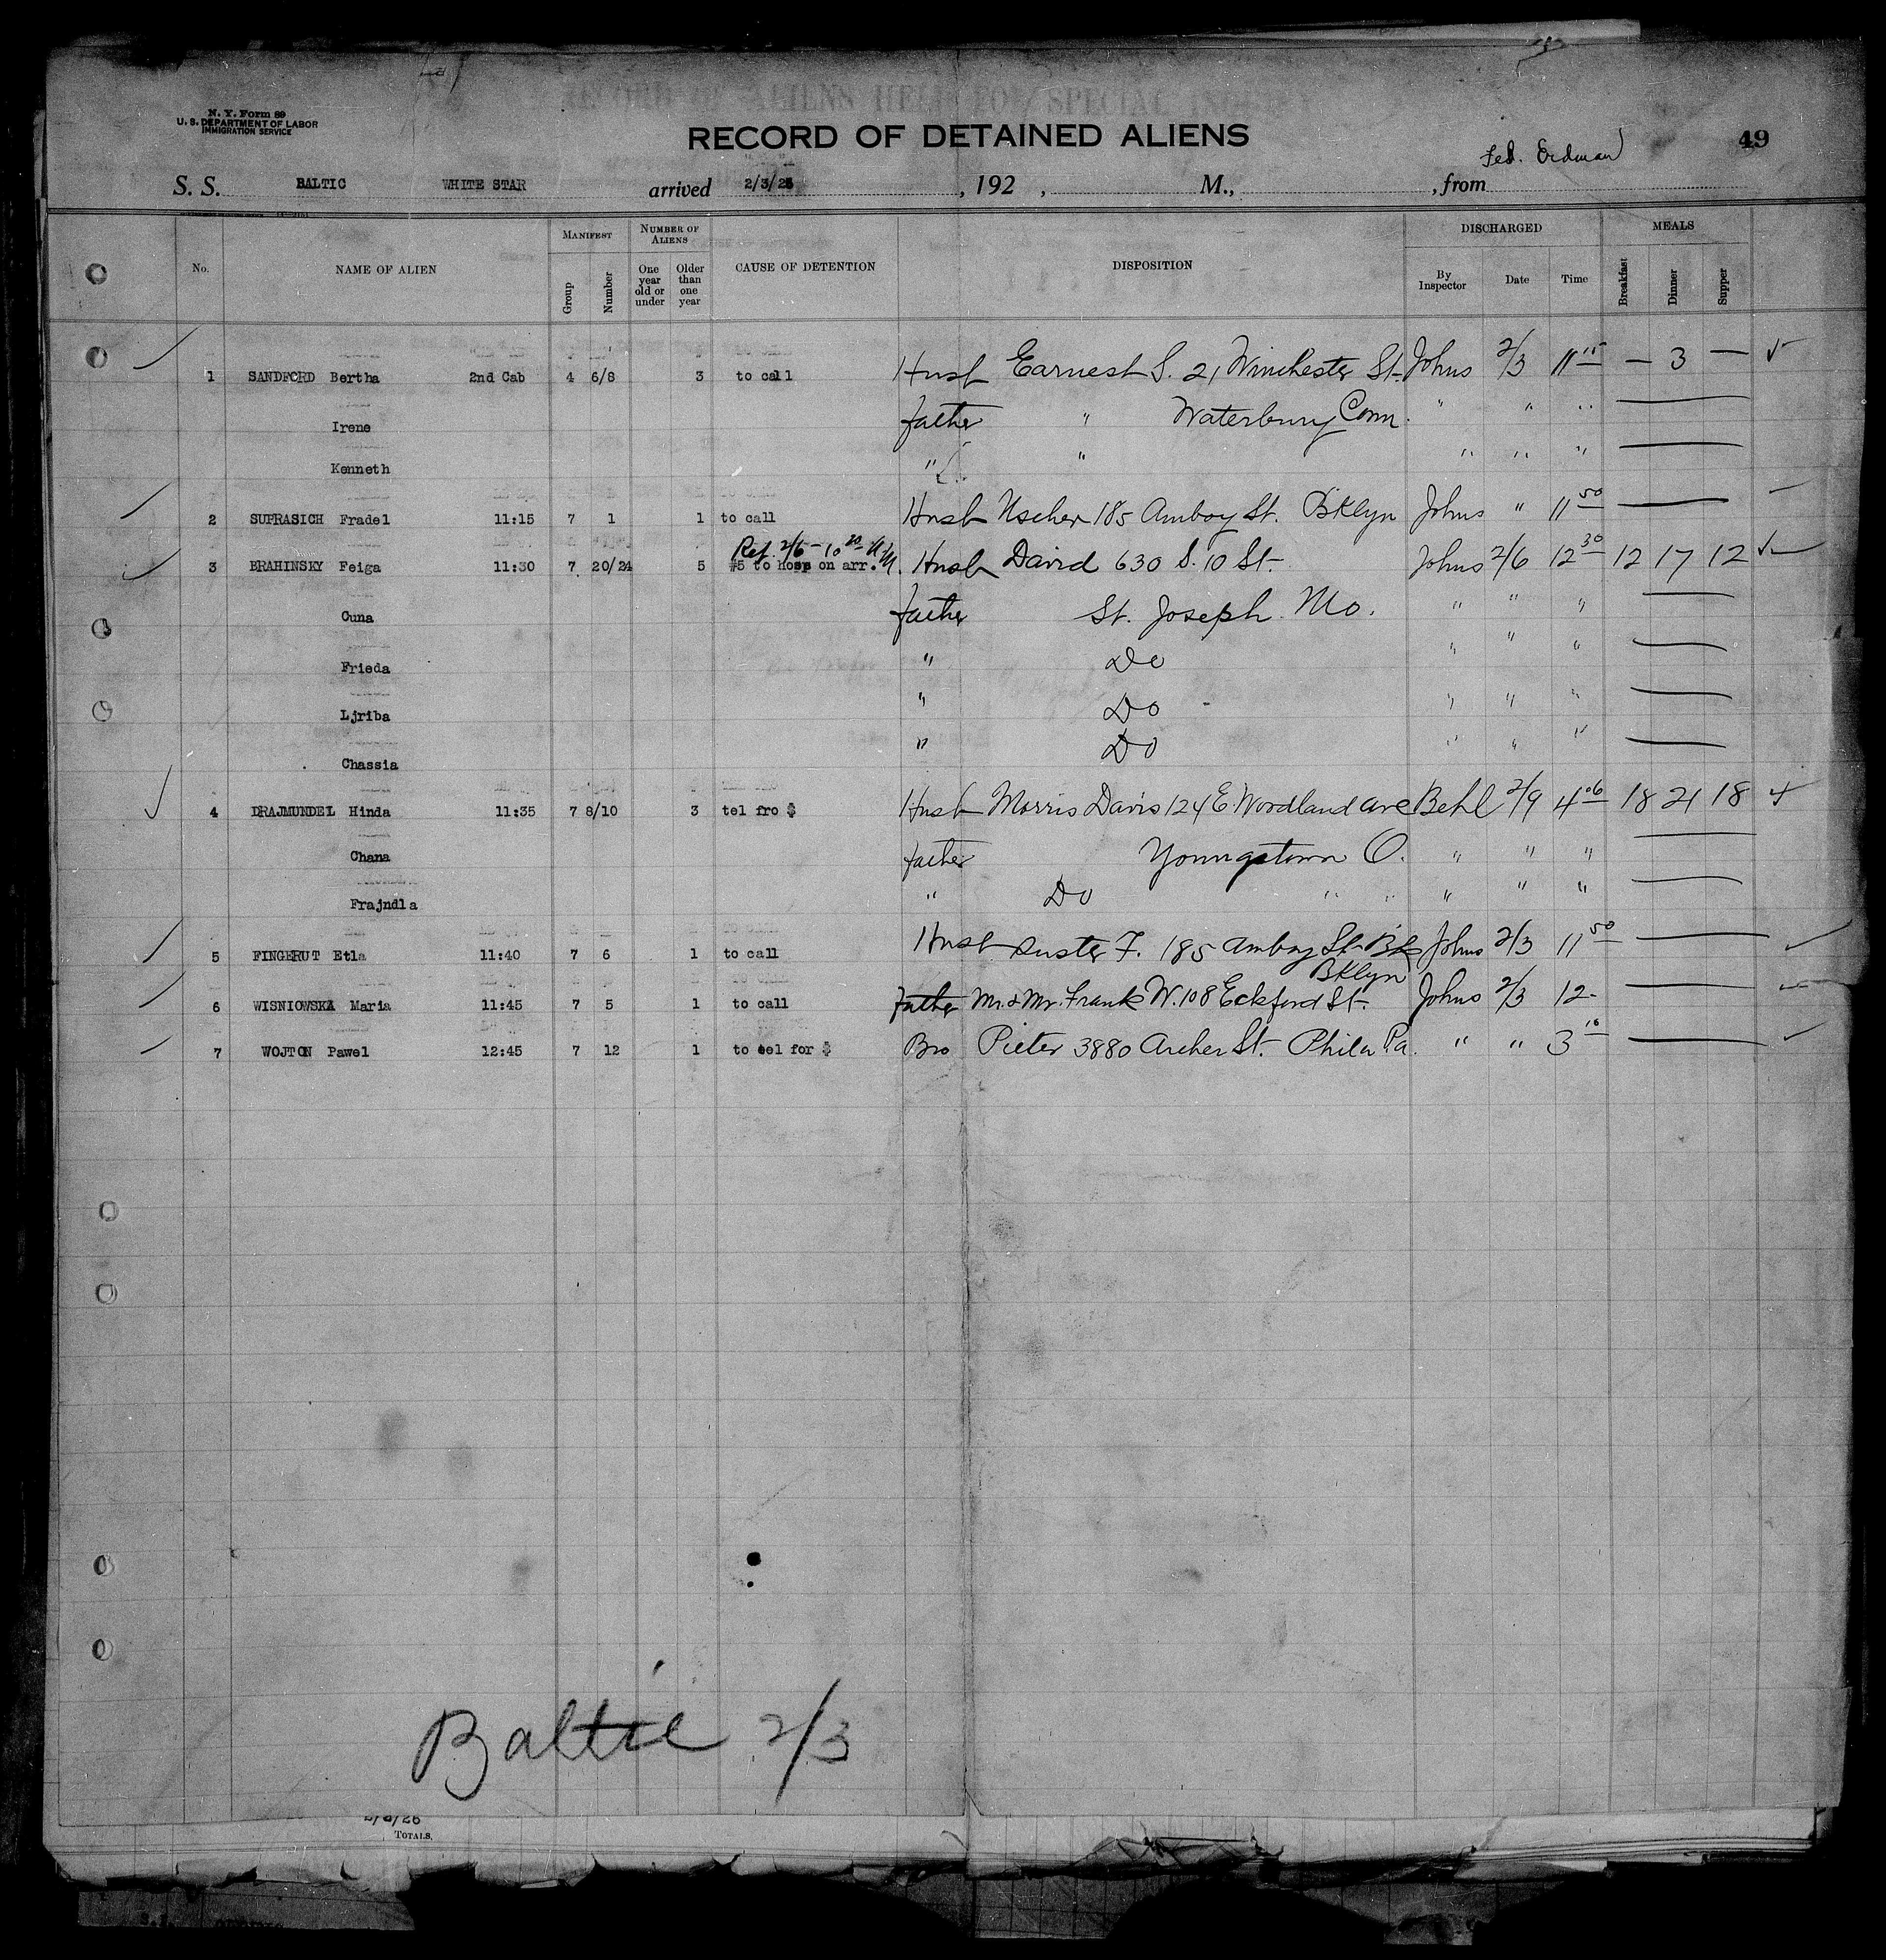 N. Y. Form 89
U. S. DEPARTMENT OF LABOR
IMMIGRATION SERVICE
RECORD OF ALIENS HELD FOR SPECIAL INQUIRY
RECORD OF DETAINED ALIENS
49
S. S. BALTIC WHITE STAR arrived 2/3/25 , 192 , M., , from
No. NAME OF ALIEN MANIFEST Group Number NUMBER OF ALIENS One year old or under Older than one year CAUSE OF DETENTION DISPOSITION DISCHARGED By Inspector Date Time MEALS Breakfast Dinner Supper
1 SANDFORD Bertha 2nd Cab 4 6/8 3 to call Husb Earnest S. 21 Winchester St. Johns 2/3 11 15 — 3 — √
Irene father " Waterbury Conn. " " "
Kenneth " " " " "
2 SUPRASICH Fradel 11:15 7 1 1 to call Husb Uscher 185 Amboy St. Bklyn Johns " 11 50
Ref. 2/6 - 10 20 A.M.
3 BRAHINSKY Feiga 11:30 7 20/24 5 #5 to hosp on arr. Husb David 630 S. 10 St. Johns 2/6 12 30 12 17 12 √
Cuna father St. Joseph Mo. " " "
Frieda " Do " " "
Ljriba " Do " " "
Chassia " Do " " "
4 DRAJMUNDEL Hinda 11:35 7 8/10 3 tel fro $ Husb Morris Davis 124 E. Woodland ave Behl 2/9 4 06 18 21 18 √
Chana father Youngstown O. " " "
Frajndla " Do " " " " "
5 FINGERUT Etla 11:40 7 6 1 to call Husb Suster F. 185 Amboy St. Bk Johns 2/3 11 50
Bklyn
6 WISNIOWSKA Maria 11:45 7 5 1 to call Father Mr. & Mr. Frank W. 108 Eckford St. Johns 2/3 12-
7 WOJTON Pawel 12:45 7 12 1 to tel for $ Bro Pieter 3880 Archer St. Phila Pa. " " 3 10
Baltic 2/3
TOTALS.